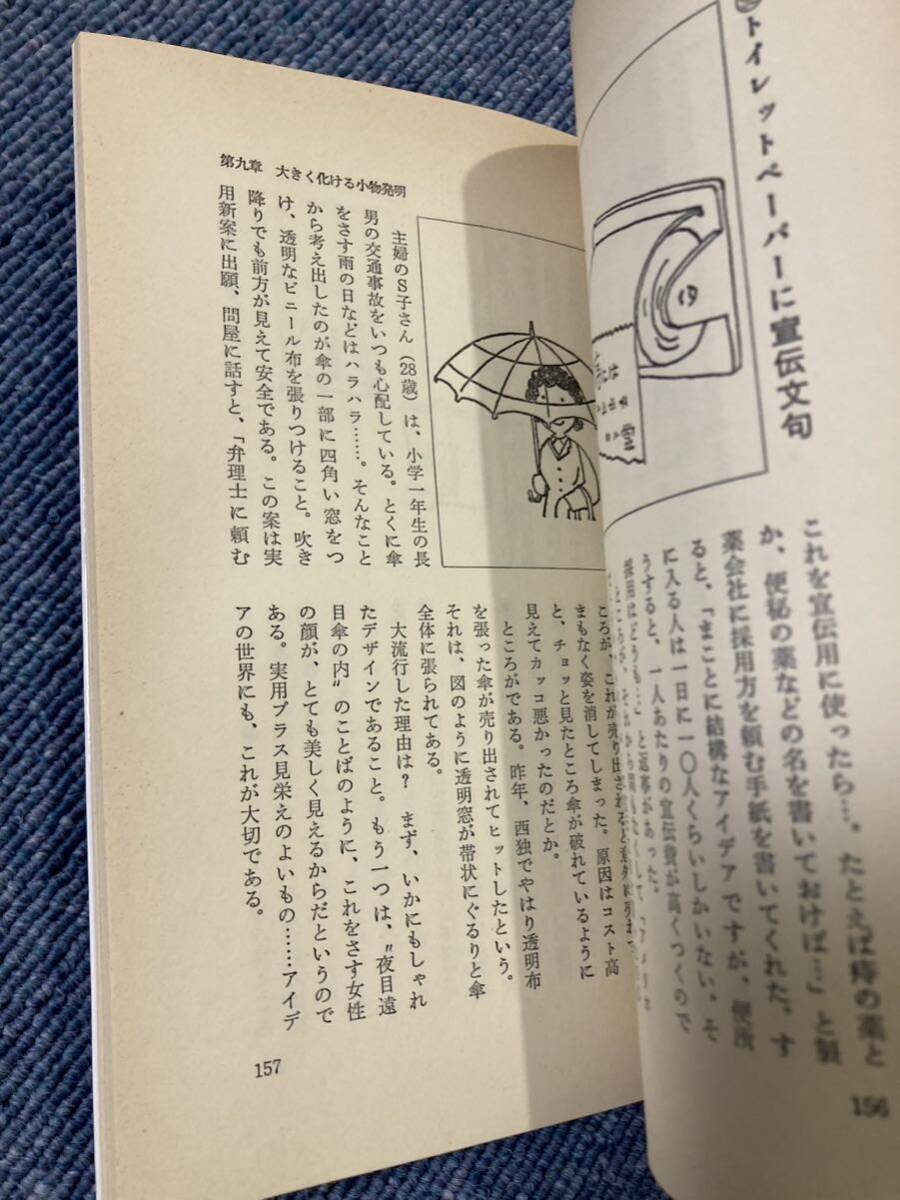 トイレットペーパーに宣伝文句
これを宣伝用に使ったら…。たとえば痔の薬と
か、便秘の薬などの名を書いておけば…」と製
薬会社に採用方を頼む手紙を書いてくれた。す
ると、「まことに結構なアイデアですが、便所
に入る人は一日に一〇人くらいしかいない。そ
うすると、一人あたりの宣伝費が高くつくので
採用はどうも…」と返事があった。
156
第九章　大きく化ける小物発明
主婦のS子さん（28歳）は、小学一年生の長
男の交通事故をいつも心配している。とくに傘
をさす雨の日などはハラハラ……。そんなこと
から考え出したのが傘の一部に四角い窓をつ
け、透明なビニール布を張りつけること。吹き
降りでも前方が見えて安全である。この案は実
用新案に出願、問屋に話すと、「弁理士に頼む
ころが、これが売り出されると意外に
まもなく姿を消してしまった。原因はコスト高
と、チョッと見たところ傘が破れているように
見えてカッコ悪かったのだとか。
ところがである。昨年、西独でやはり透明布
を張った傘が売り出されてヒットしたという。
それは、図のように透明窓が帯状にぐるりと傘
全体に張られてある。
大流行した理由は？　まず、いかにもしゃれ
たデザインであること。もう一つは、〝夜目遠
目傘の内〟のことばのように、これをさす女性
の顔が、とても美しく見えるからだというので
ある。実用プラス見栄えのよいもの……アイデ
アの世界にも、これが大切である。
157